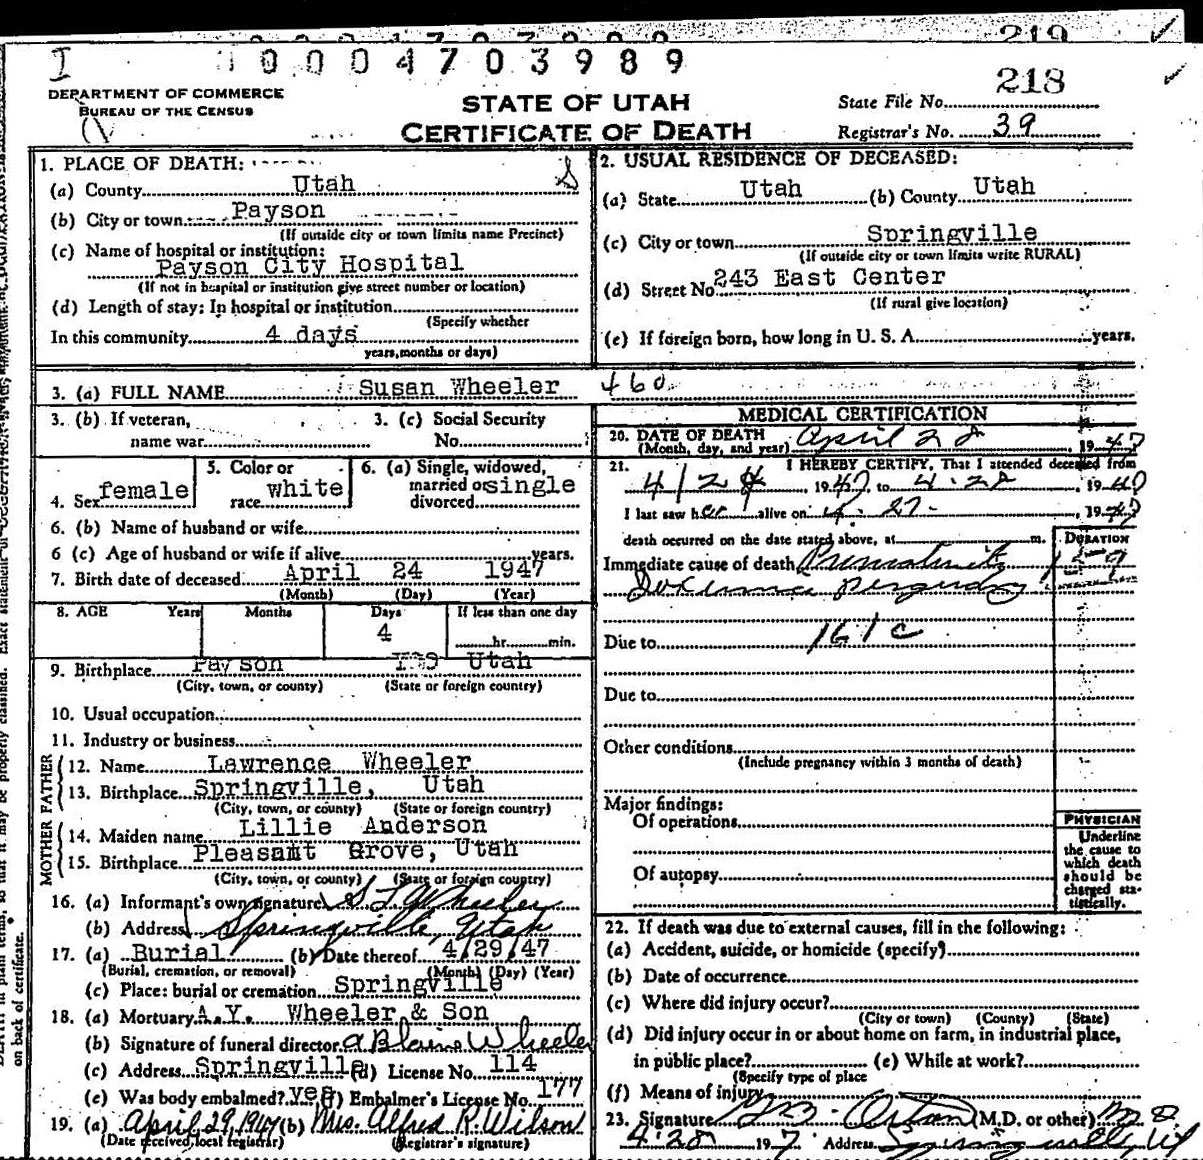 219
I 10004703989
218
DEPARTMENT OF COMMERCE
BUREAU OF THE CENSUS
STATE OF UTAH
CERTIFICATE OF DEATH
State File No.
Registrar's No. 39
1. PLACE OF DEATH:
(a) County Utah
(b) City or town Payson
(If outside city or town limits name Precinct)
(c) Name of hospital or institution:
Payson City Hospital
(If not in hospital or institution give street number or location)
(d) Length of stay: In hospital or institution
(Specify whether
In this community 4 days
years, months or days)
2. USUAL RESIDENCE OF DECEASED:
(a) State Utah (b) County Utah
(c) City or town Springville
(If outside city or town limits write RURAL)
(d) Street No. 243 East Center
(If rural give location)
(e) If foreign born, how long in U. S. A. years.
3. (a) FULL NAME Susan Wheeler 460
3. (b) If veteran,
name war
3. (c) Social Security
No.
4. Sex female
5. Color or
race white
6. (a) Single, widowed,
married or single
divorced
6. (b) Name of husband or wife
6 (c) Age of husband or wife if alive years.
7. Birth date of deceased April 24 1947
(Month) (Day) (Year)
8. AGE Years Months Days If less than one day
4 hr. min.
9. Birthplace Payson Utah
(City, town, or county) (State or foreign country)
10. Usual occupation
11. Industry or business
FATHER
12. Name Lawrence Wheeler
13. Birthplace Springville, Utah
(City, town, or county) (State or foreign country)
MOTHER
14. Maiden name Lillie Anderson
15. Birthplace Pleasant Grove, Utah
(City, town, or county) (State or foreign country)
16. (a) Informant's own signature S L Wheeler
(b) Address Springville, Utah
17. (a) Burial (b) Date thereof 4/29/47
(Burial, cremation, or removal) (Month) (Day) (Year)
(c) Place: burial or cremation Springville
18. (a) Mortuary A.Y. Wheeler & Son
(b) Signature of funeral director A Blaine Wheeler
(c) Address Springville (d) License No. 114
(e) Was body embalmed? yes (f) Embalmer's License No. 177
19. (a) April 29, 1947 (b) Mrs. Alfred R. Wilson
(Date received, local registrar) (Registrar's signature)
MEDICAL CERTIFICATION
20. DATE OF DEATH
(Month, day, and year) April 28 1947
21. I HEREBY CERTIFY, That I attended deceased from
4/24, 1947, to 4-28, 1947
I last saw her alive on 4-27-, 1947
death occurred on the date stated above, at m.
DURATION
Immediate cause of death Prematurity
161c
Due to
Due to
Other conditions
(Include pregnancy within 3 months of death)
Major findings:
Of operations
Of autopsy
PHYSICIAN
Underline
the cause to
which death
should be
charged sta-
tistically.
22. If death was due to external causes, fill in the following:
(a) Accident, suicide, or homicide (specify)
(b) Date of occurrence
(c) Where did injury occur?
(City or town) (County) (State)
(d) Did injury occur in or about home on farm, in industrial place,
in public place? (e) While at work?
(Specify type of place
(f) Means of injury
23. Signature Orton (M.D. or other) M D
4-28 1947 Address Springville, Ut
on back of certificate.